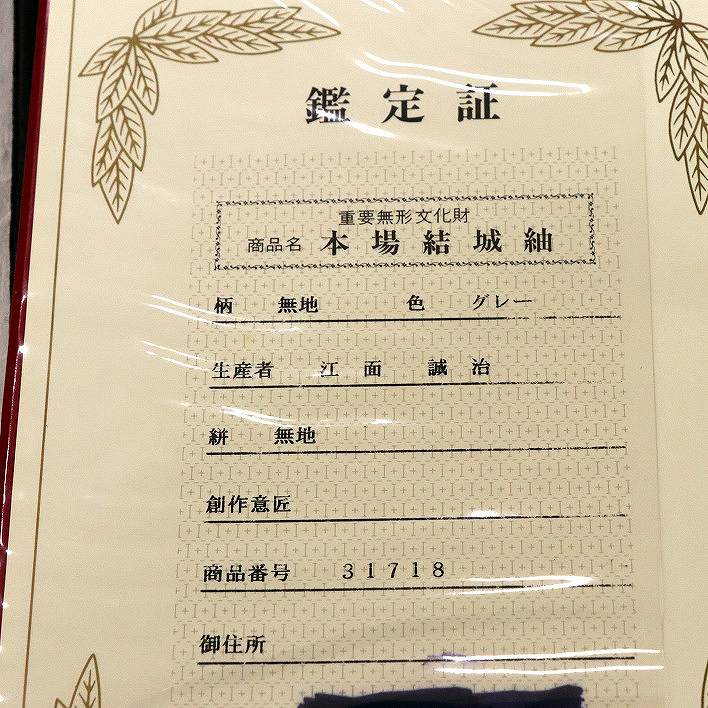 鑑定証
重要無形文化財
商品名 本場結城紬
柄 無地 色 グレー
生産者 江面 誠治
絣 無地
創作意匠
商品番号 31718
御住所